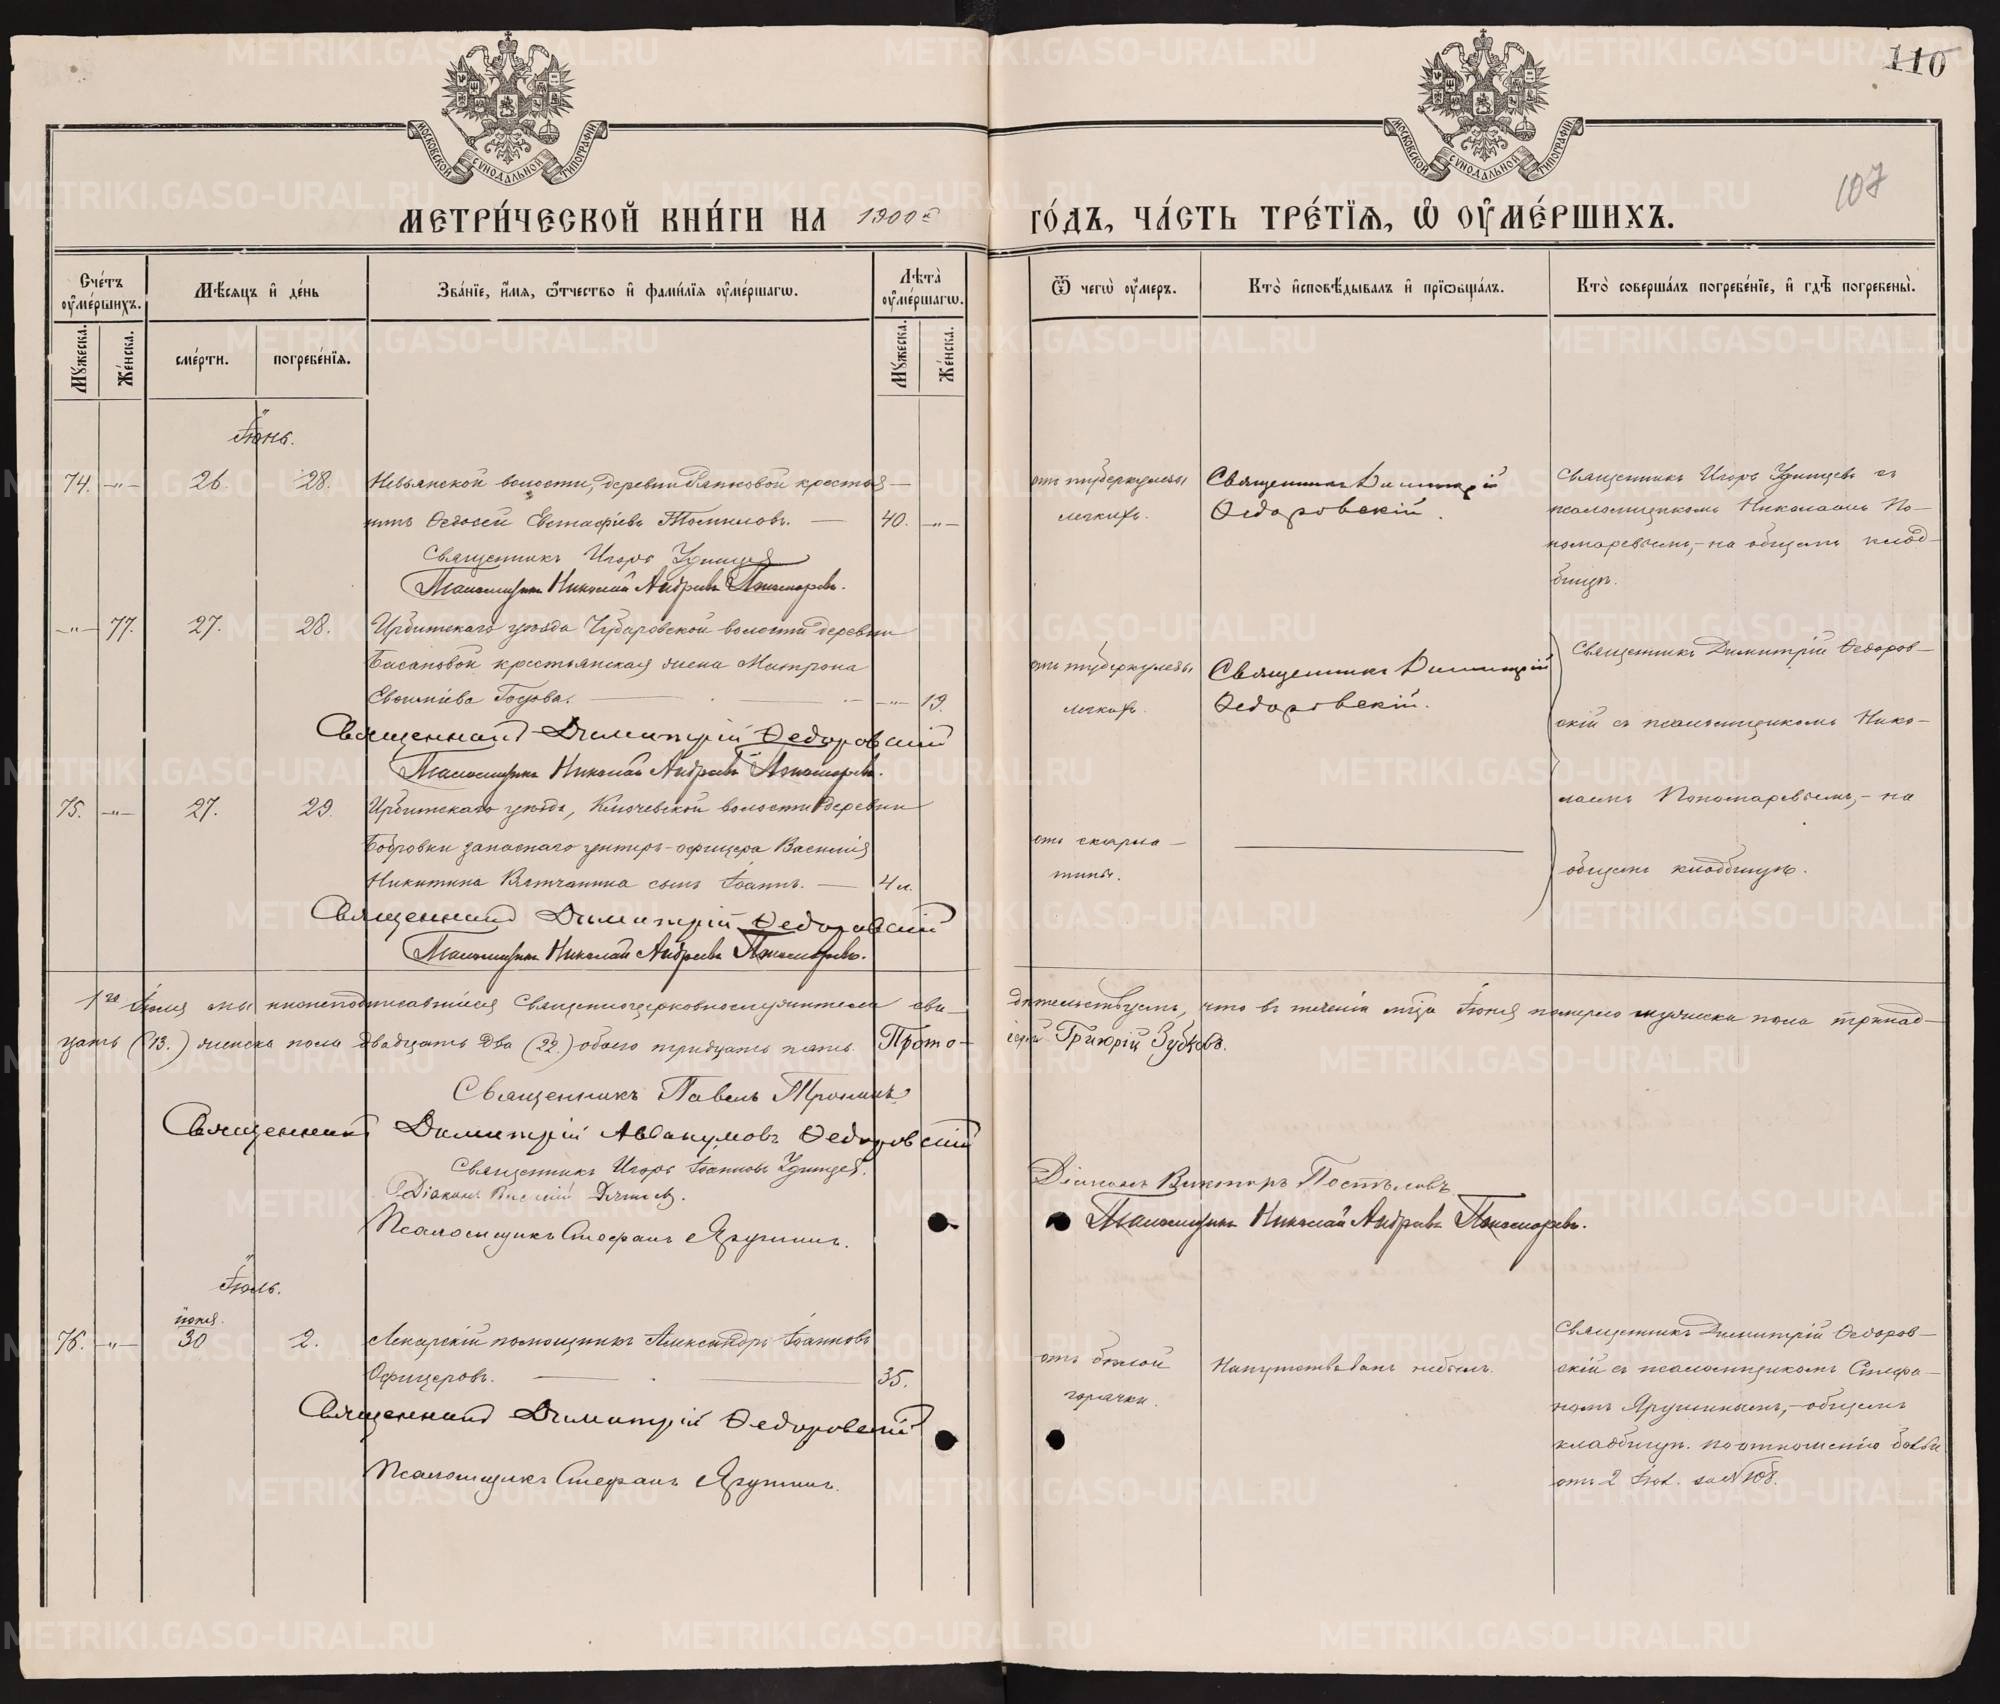 110
107
МОСКОВСКОЙ СУНОДАЛЬНОЙ ТИПОГРАФІИ
МОСКОВСКОЙ СУНОДАЛЬНОЙ ТИПОГРАФІИ
МЕТРИ́ЧЕСКОЙ КНИ́ГИ НА 1900 й
ГО́ДЪ, ЧА́СТЬ ТРЕ́ТІЯ, Ѡ ОУ҆МЕ́РШИХЪ.
Сче́тъ оу҆ме́ршихъ.
Мѣ́сяцъ и҆ де́нь
Зва́ніе, и҆́мя, ѻ҆́тчество и҆ фами́лія оу҆ме́ршагѡ.
Лѣ́та оу҆ме́ршагѡ.
Ѿ чегѡ̀ оу҆́меръ.
Кто̀ и҆сповѣ́дывалъ и҆ прїѻбща́лъ.
Кто̀ соверша́лъ погребе́ніе, и҆ гдѣ̀ погребены̀.
Му́жеска.
Же́нска.
сме́рти.
погребе́нія.
Му́жеска.
Же́нска.
Іюнь.
74. -"- 26. 28. Невьянской волости, деревни крестья-
нинъ Ѳедосей Евстафіевъ Томиловъ. — 40. -"-
Священникъ Игорь Удинцев
Псаломщикъ Николай Андреевъ Пономаревъ.
отъ туберкулезы
легкихъ.
Священникъ Димитрій
Ѳедоровскій.
Священникъ Игорь Удинцевъ съ
псаломщикомъ Николаемъ По-
номаревымъ,- на общемъ клад-
бищѣ.
-"- 77. 27. 28. Ирбитскаго уѣзда Чубаровской волости деревни
Басановой крестьянская жена Матрона
Евсиміева . — -"- 19.
Священникъ Димитрій Ѳедоровскій
Псаломщикъ Николай Андреевъ Пономаревъ.
отъ туберкулезы
легкихъ.
Священникъ Димитрій
Ѳедоровскій.
Священникъ Димитрій Ѳедоров-
скій съ псаломщикомъ Нико-
лаемъ Пономаревымъ,- на
общемъ кладбищѣ.
75. -"- 27. 29. Ирбитскаго уѣзда, Ключевской волости деревни
Бобровки запаснаго унтеръ-офицера Василія
Никитина Вятчанина сынъ Іоаннъ. — 4 м.
Священникъ Димитрій Ѳедоровскій
Псаломщикъ Николай Андреевъ Пономаревъ.
отъ скарла-
тины.
1го Іюля мы нижеподписавшіеся Священноцерковнослужители сви-
дѣтельствуемъ, что въ теченіи м-ца Іюня померло мужеска пола тринад-
цать (13.) женска пола двадцать два (22.) обоего тридцать пять. Прото-
іерей Григорій Зубковъ.
Священникъ Павелъ
Священникъ Димитрій Аввакумовъ Ѳедоровскій
Священникъ Игорь Іоанновъ Удинцев.
Діаконъ Василій
Діаконъ Викторъ
Псаломщикъ Стефанъ Ярушинъ.
Псаломщикъ Николай Андреевъ Пономаревъ.
Іюль.
76. -"- іюня 30 2. Лекарскій помощникъ Александръ Іоанновъ
Офицеровъ. — 35.
Священникъ Димитрій Ѳедоровскій
Псаломщикъ Стефанъ Ярушинъ.
отъ бѣлой
горячки.
Напутствованъ небылъ.
Священникъ Димитрій Ѳедоров-
скій съ псаломщикомъ Стефа-
номъ Ярушинымъ,- общемъ
кладбищѣ. по отношенію
отъ 2 Іюл. за № 108.
METRIKI.GASO-URAL.RU